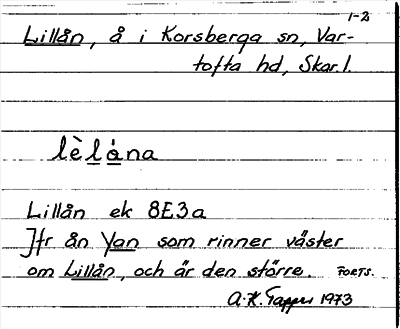 1-2
Lillån, å i Korsberga sn, Var-
tofta hd, Skar. l.
lèlå̇na
Lillån ek 8E3a
Jfr ån Yan som rinner väster
om Lillån, och är den större. FORTS.
A.K. 1973